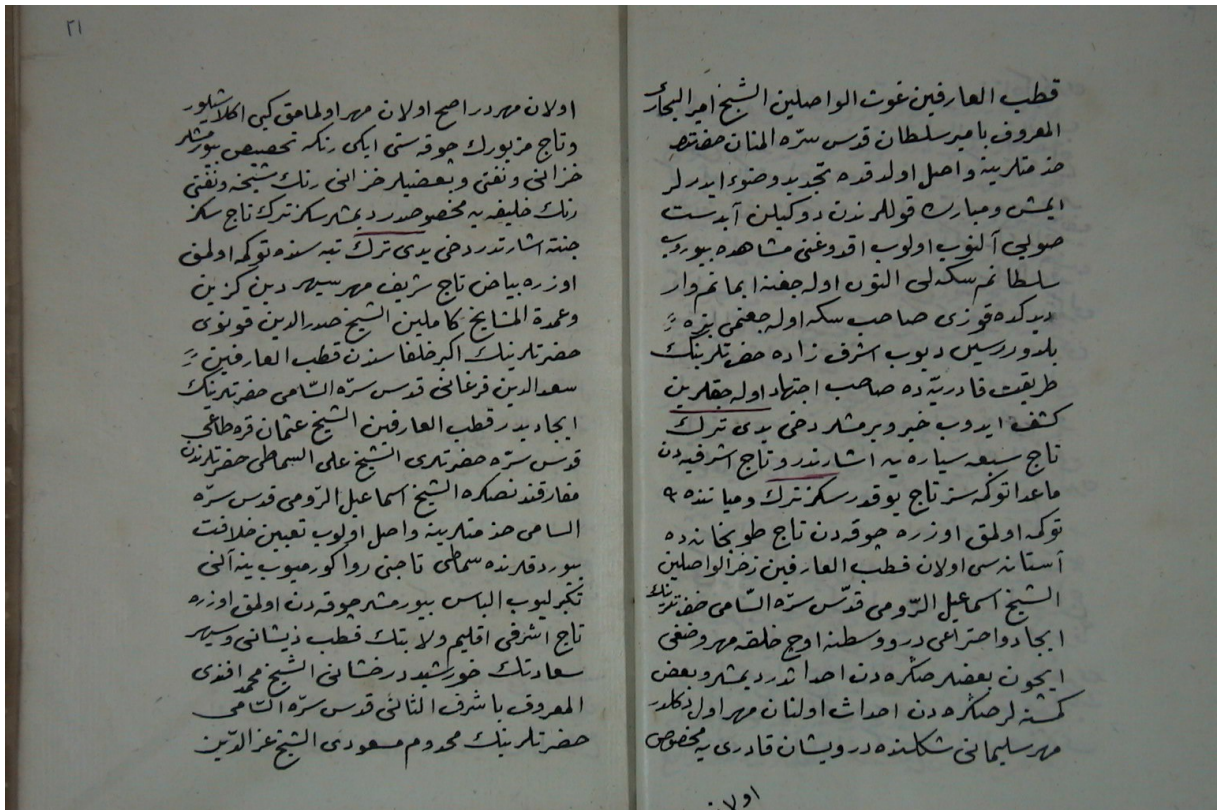 قطب العارفين غوث الواصلين الشيخ امير البخارى
المعروف بامير سلطان قدس سرّه المنان حضرتلرى
خدمتلرينه واصل اولدقده تجديد وضوء ايدرلر
ايمش ومبارك قوللرندن دوكيلن آبدست
صويى آلتون اولوب اقدوغنى مشاهده بيوروب
سلطانم سكه لى التون اوله جغنه ايمانم وار
ديدكده قوزى صاحب سكه اوله جغنى بزه
بلدوررسين ديوب اشرف زاده حضرتلرينك
طريقت قادريّه ده صاحب اجتهاد اوله جقلرين
كشف ايدوب خبر ويرمشلر دخى يدى ترك
تاج سبعه سياره يه اشارتدر وتاج اشرفيه دن
ماعدا توكمه سز تاج يوقدر سكز ترك وميانده ٩
توكمه اولمق اوزره چوقه دن تاج طوبخانه ده
آستانه سى اولان قطب العارفين زخر الواصلين
الشيخ اسماعيل الرّومى قدّس سرّه السّامى حضرتلرينك
ايجاد واختراعى در ووسطنه اوچ حلقه مهر وضعى
ايچون بعضلر صكره دن احداثدر ديمشلر وبعض
كمسنه لر صكره دن احداث اولنان مهر اول دكلدر
مهر سليمانى شكلنده درويشان قادرى يه مخصوص
اولان
٢١
اولان مهردر اصح اولان مهر اولمامق كبى اكلاشيلور
وتاج مزبورك چوقه ستى ايكى رنكه تخصيص بيورمشلر
خزانى ونفتى وبعضيلر خزانى رنك شيخه ونفتى
رنك خليفه يه مخصوصدر ديمشلر سكز ترك تاج سكز
جنته اشارتدر دخى يدى ترك تپه سنده توكمه اولمق
اوزره بياض تاج شريف مهر سپهر دين كزين
وعمدة المشايخ كاملين الشيخ صدر الدين قونوى
حضرتلرينك اكبر خلفاسندن قطب العارفين
سعد الدين فرغانى قدس سرّه السّامى حضرتلرينك
ايجاديدر قطب العارفين الشيخ عثمان قره طاغى
قدس سرّه حضرتلرى الشيخ على السماطى حضرتلرندن
مفارقتدنصكره الشيخ اسماعيل الرّومى قدس سرّه
السامى خدمتلرينه واصل اولوب تعيين خلافت
بيوردقلرنده سماطى تاجنى روا كورميوب ينه آنى
تكبيرليوب الباس بيورمشلر چوقه دن اولمق اوزره
تاج اشرفى اقليم ولايتك قطب ذيشانى وسپهر
سعادتك خورشيد درخشانى الشيخ محمد افندى
المعروف باشرف الثانى قدس سرّه السّامى
حضرتلرينك مخدوم مسعودى الشيخ عز الدّين